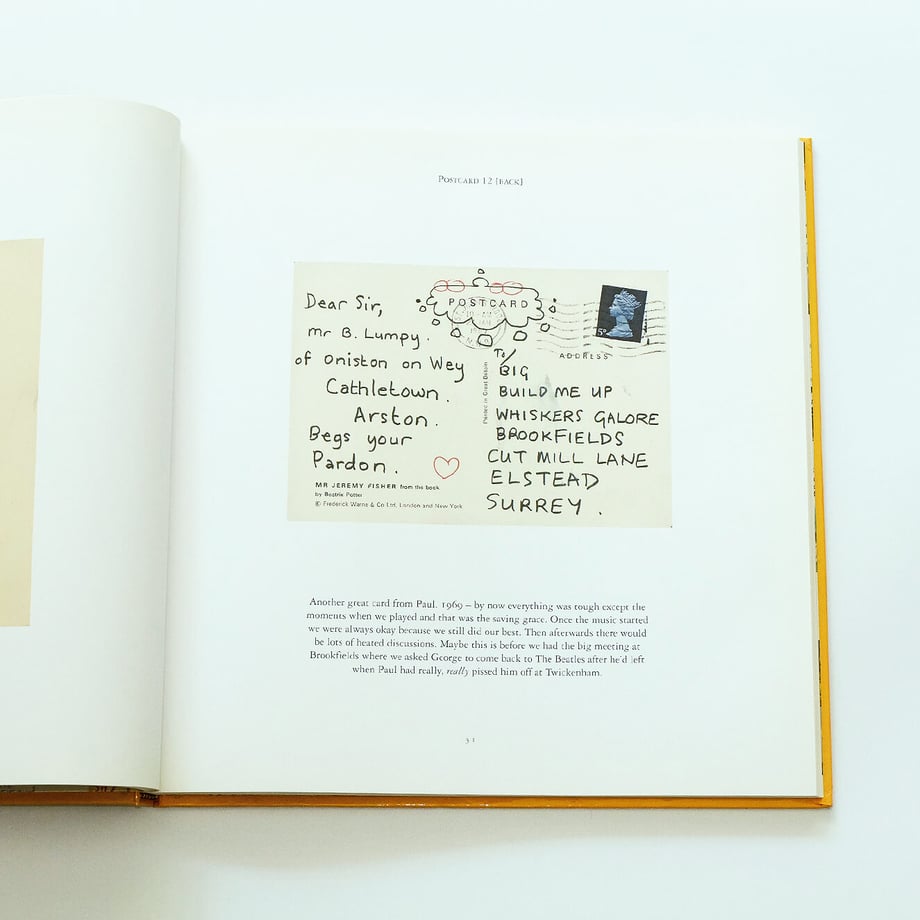 POSTCARD 12 [BACK]
POSTCARD
Dear Sir,
mr B. Lumpy.
of Oniston on Wey
Cathletown.
Arston.
Begs your
Pardon.
MR JEREMY FISHER from the book
by Beatrix Potter
© Frederick Warne & Co Ltd, London and New York
Printed in Great Britain
5D
ADDRESS
To/
BIG
BUILD ME UP
WHISKERS GALORE
BROOKFIELDS
CUT MILL LANE
ELSTEAD
SURREY.
Another great card from Paul. 1969 – by now everything was tough except the
moments when we played and that was the saving grace. Once the music started
we were always okay because we still did our best. Then afterwards there would
be lots of heated discussions. Maybe this is before we had the big meeting at
Brookfields where we asked George to come back to The Beatles after he'd left
when Paul had really, really pissed him off at Twickenham.